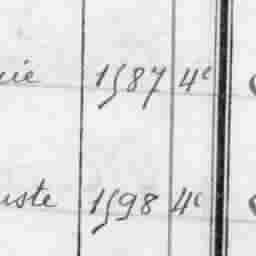 uie 1587 4e
uste 1598 4e